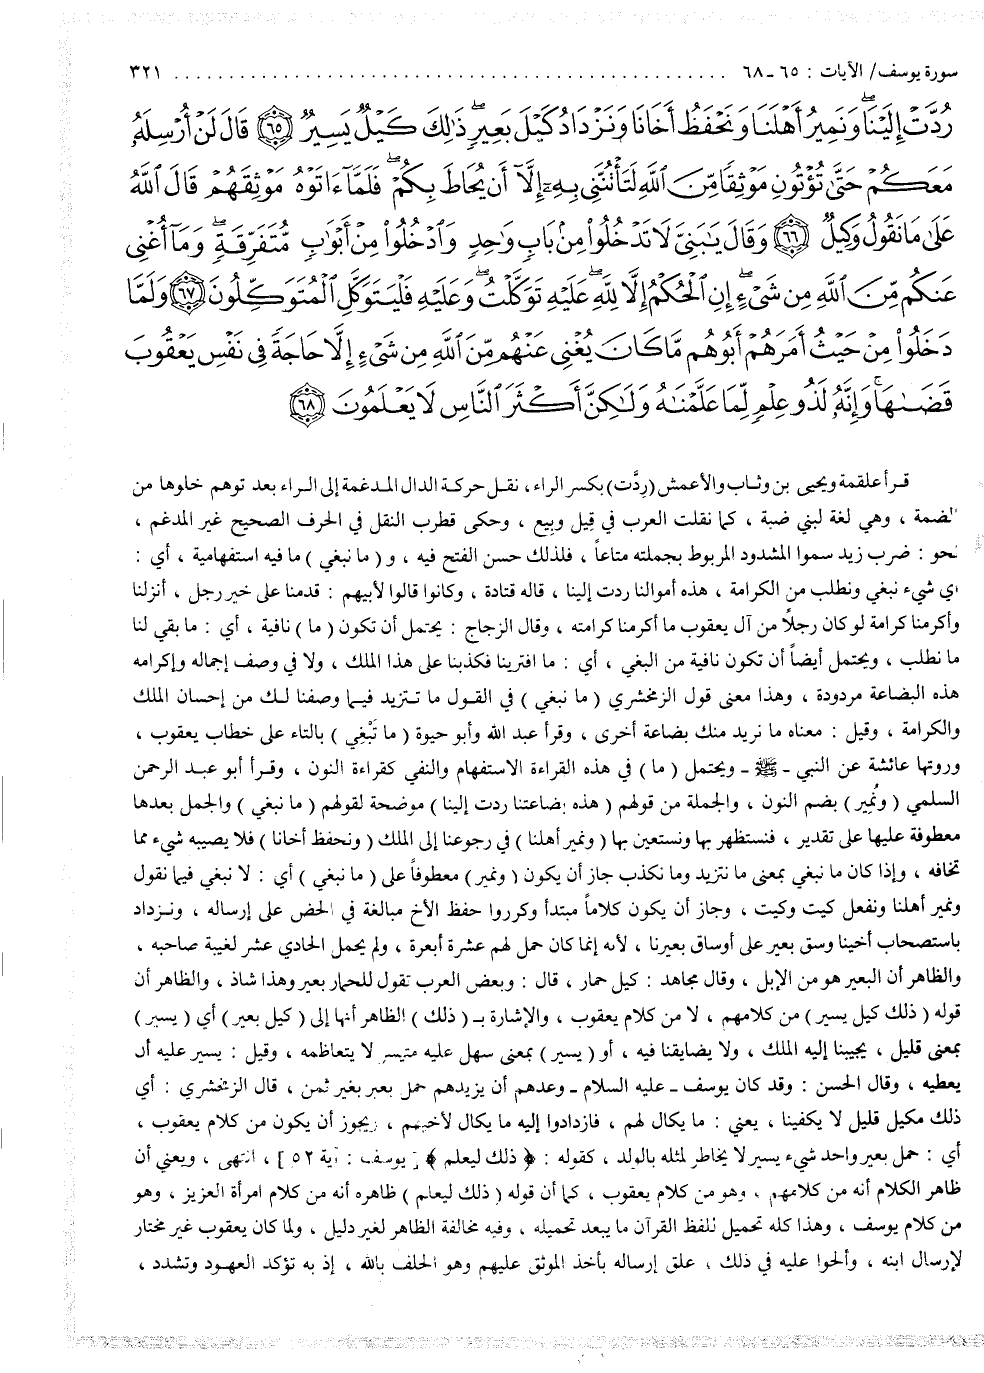 سورة يوسف/ الآيات : ٦٥ ـ ٦٨ ........................................ ٣٢١
رُدَّتۡ إِلَيۡنَاۖ وَنَمِيرُ أَهۡلَنَا وَنَحۡفَظُ أَخَانَا وَنَزۡدَادُ كَيۡلَ بَعِيرٖۖ ذَٰلِكَ كَيۡلٞ يَسِيرٞ ٦٥ قَالَ لَنۡ أُرۡسِلَهُۥ
مَعَكُمۡ حَتَّىٰ تُؤۡتُونِ مَوۡثِقٗا مِّنَ ٱللَّهِ لَتَأۡتُنَّنِي بِهِۦٓ إِلَّآ أَن يُحَاطَ بِكُمۡۖ فَلَمَّآ ءَاتَوۡهُ مَوۡثِقَهُمۡ قَالَ ٱللَّهُ
عَلَىٰ مَا نَقُولُ وَكِيلٞ ٦٦ وَقَالَ يَٰبَنِيَّ لَا تَدۡخُلُواْ مِنۢ بَابٖ وَٰحِدٖ وَٱدۡخُلُواْ مِنۡ أَبۡوَٰبٖ مُّتَفَرِّقَةٖۖ وَمَآ أُغۡنِي
عَنكُم مِّنَ ٱللَّهِ مِن شَيۡءٍۖ إِنِ ٱلۡحُكۡمُ إِلَّا لِلَّهِۖ عَلَيۡهِ تَوَكَّلۡتُۖ وَعَلَيۡهِ فَلۡيَتَوَكَّلِ ٱلۡمُتَوَكِّلُونَ ٦٧ وَلَمَّا
دَخَلُواْ مِنۡ حَيۡثُ أَمَرَهُمۡ أَبُوهُم مَّا كَانَ يُغۡنِي عَنۡهُم مِّنَ ٱللَّهِ مِن شَيۡءٍ إِلَّا حَاجَةٗ فِي نَفۡسِ يَعۡقُوبَ
قَضَىٰهَاۚ وَإِنَّهُۥ لَذُو عِلۡمٖ لِّمَا عَلَّمۡنَٰهُ وَلَٰكِنَّ أَكۡثَرَ ٱلنَّاسِ لَا يَعۡلَمُونَ ٦٨
قرأ علقمة ويحيى بن وثاب والأعمش (رِدَّت) بكسر الراء ، نقل حركة الدال المدغمة إلى الراء بعد توهم خلوها من
الضمة ، وهي لغة لبني ضبة ، كما نقلت العرب في قيل وبيع ، وحكى قطرب النقل في الحرف الصحيح غير المدغم ،
نحو : ضرب زيد سموا المشدود المربوط بجملته متاعاً ، فلذلك حسن الفتح فيه ، و ( ما نبغي ) ما فيه استفهامية ، أي :
أي شيء نبغي ونطلب من الكرامة ، هذه أموالنا ردت إلينا ، قاله قتادة ، وكانوا قالوا لأبيهم : قدمنا على خير رجل ، أنزلنا
وأكرمنا كرامة لو كان رجلًا من آل يعقوب ما أكرمنا كرامته ، وقال الزجاج : يحتمل أن تكون ( ما ) نافية ، أي : ما بقي لنا
ما نطلب ، ويحتمل أيضاً أن تكون نافية من البغي ، أي : ما افترينا فكذبنا على هذا الملك ، ولا في وصف إجماله وإكرامه
هذه البضاعة مردودة ، وهذا معنى قول الزمخشري ( ما نبغي ) في القول ما تتزيد فيما وصفنا لك من إحسان الملك
والكرامة ، وقيل : معناه ما نريد منك بضاعة أخرى ، وقرأ عبد الله وأبو حيوة ( ما تَبْغِي ) بالتاء على خطاب يعقوب ،
وروتها عائشة عن النبي ـ ﷺ ـ ويحتمل ( ما ) في هذه القراءة الاستفهام والنفي كقراءة النون ، وقرأ أبو عبد الرحمن
السلمي ( ونُمِير) بضم النون ، والجملة من قولهم ( هذه بضاعتنا ردت إلينا ) موضحة لقولهم ( ما نبغي ) والجمل بعدها
معطوفة عليها على تقدير ، فنستظهر بها ونستعين بها ( ونمير أهلنا ) في رجوعنا إلى الملك ( ونحفظ أخانا ) فلا يصيبه شيء مما
تخافه ، وإذا كان ما نبغي بمعنى ما نتزيد وما نكذب جاز أن يكون ( ونمير) معطوفاً على ( ما نبغي ) أي : لا نبغي فيما نقول
ونمير أهلنا ونفعل كيت وكيت ، وجاز أن يكون كلاماً مبتدأ وكرروا حفظ الأخ مبالغة في الحض على إرساله ، ونزداد
باستصحاب أخينا وسق بعير على أوساق بعيرنا ، لأنه إنما كان حمل لهم عشرة أبعرة ، ولم يحمل الحادي عشر لغيبة صاحبه ،
والظاهر أن البعير هو من الإبل ، وقال مجاهد : كيل حمار ، قال : وبعض العرب تقول للحمار بعير وهذا شاذ ، والظاهر أن
قوله ( ذلك كيل يسير) من كلامهم ، لا من كلام يعقوب ، والإشارة بـ ( ذلك ) الظاهر أنها إلى ( كيل بعير) أي ( يسير )
بمعنى قليل ، يجيبنا إليه الملك ، ولا يضايقنا فيه ، أو ( يسير ) بمعنى سهل عليه متيسر لا يتعاظمه ، وقيل : يسير عليه أن
يعطيه ، وقال الحسن : وقد كان يوسف ـ عليه السلام ـ وعدهم أن يزيدهم حمل بعير بغير ثمن ، قال الزمخشري : أي
ذلك مكيل قليل لا يكفينا ، يعني : ما يكال لهم ، فازدادوا إليه ما يكال لأخيهم ، ويجوز أن يكون من كلام يعقوب ،
أي : حمل بعير واحد شيء يسير لا يخاطر لمثله بالولد ، كقوله : ﴿ ذلك ليعلم ﴾ [ يوسف : آية ٥٢ ] ، انتهى ، ويعني أن
ظاهر الكلام أنه من كلامهم ، وهو من كلام يعقوب ، كما أن قوله ( ذلك ليعلم ) ظاهره أنه من كلام امرأة العزيز ، وهو
من كلام يوسف ، وهذا كله تحميل للفظ القرآن ما يبعد تحميله ، وفيه مخالفة الظاهر لغير دليل ، ولما كان يعقوب غير مختار
لإرسال ابنه ، وألحوا عليه في ذلك ، علق إرساله بأخذ الموثق عليهم وهو الحلف بالله ، إذ به تؤكد العهود وتشدد ،